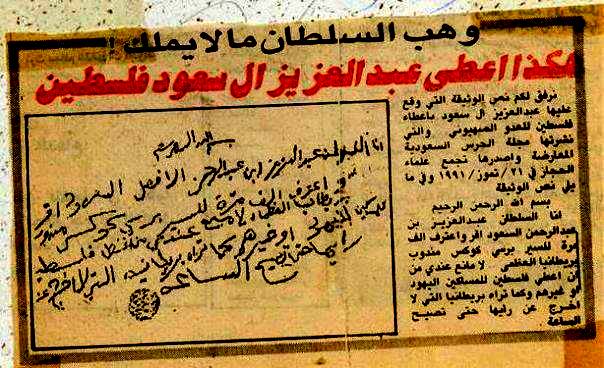 وهب السلطان ما لا يملك !
هكذا اعطى عبدالعزيز ال سعود فلسطين
نرفق لكم نص الوثيقة التي وقع
عليها عبدالعزيز ال سعود باعطاء
فلسطين للعدو الصهيوني والتي
نشرتها مجلة الحرس السعودية
المعارضة واصدرها تجمع علماء
الحجاز في ٢١/تموز/١٩٩١ وفي ما
يلي نص الوثيقة
بسم الله الرحمن الرحيم
انا السلطان عبدالعزيز بن
عبدالرحمن السعود اقر واعترف الف
مرة للسير برسي كوكس مندوب
بريطانيا العظمى لا مانع عندي من
ان اعطي فلسطين للمساكين اليهود
او غيرهم وكما تراه بريطانيا التي لا
اخرج عن رايها حتى تصيح
الساعة
بسم الله الرحمن الرحيم
انا السلطان عبدالعزيز ابن عبدالرحمن الفيصل السعود اقر
واعترف الف مرة للسير برسي كوكس مندوب
بريطانيا العظمى لا مانع عندي فلسطين